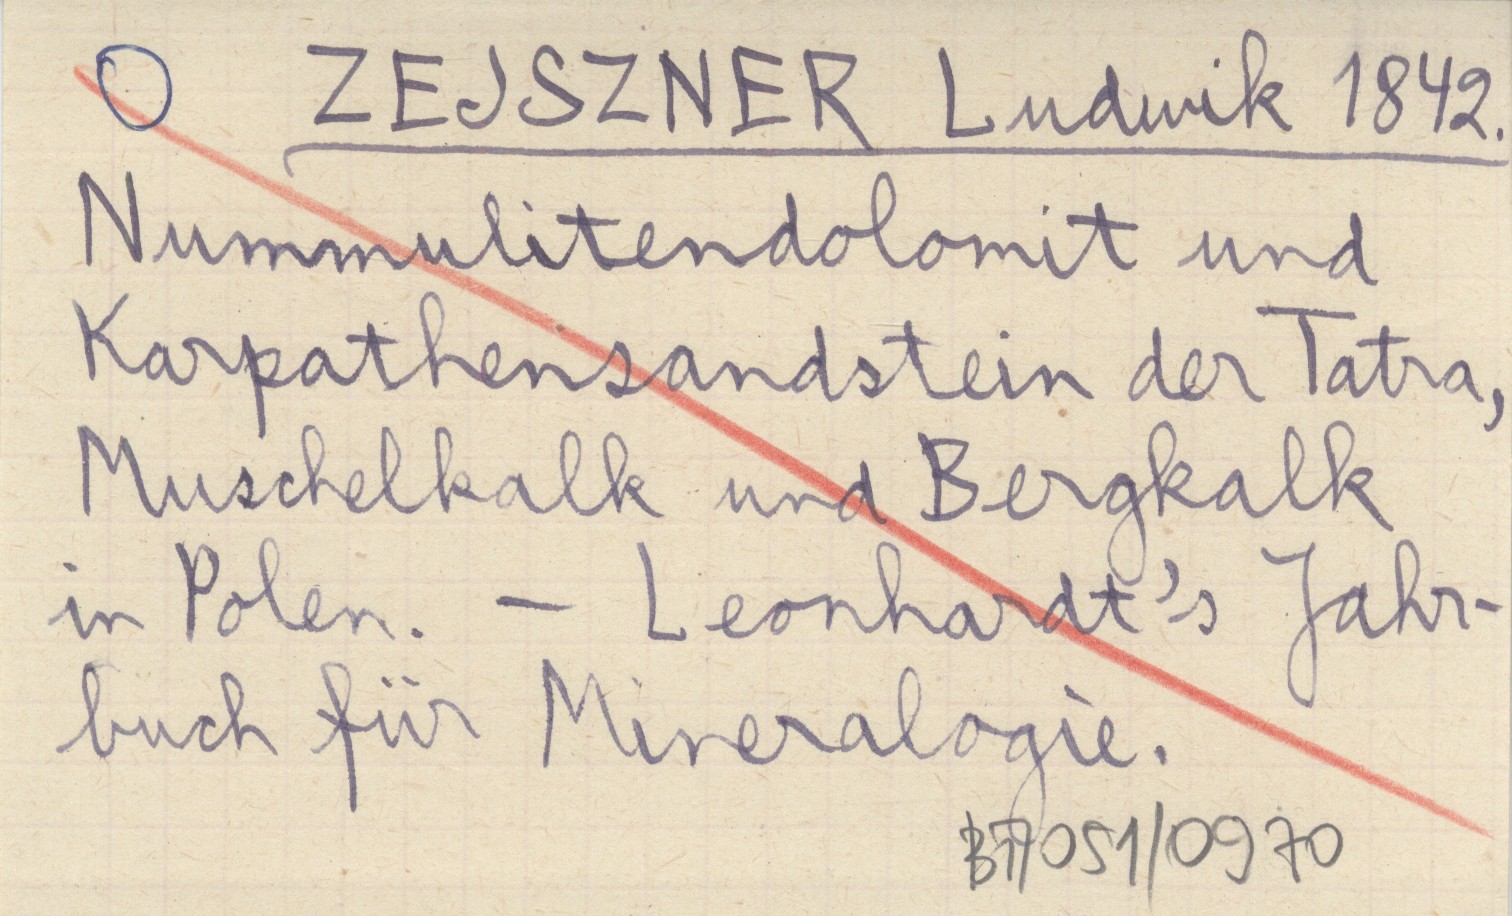 ZEJSZNER Ludwik 1842.
Nummulitendolomit und
Karpathensandstein der Tatra,
Muschelkalk und Bergkalk
in Polen. — Leonhardt's Jahr-
buch für Mineralogie.
BT/051/0970